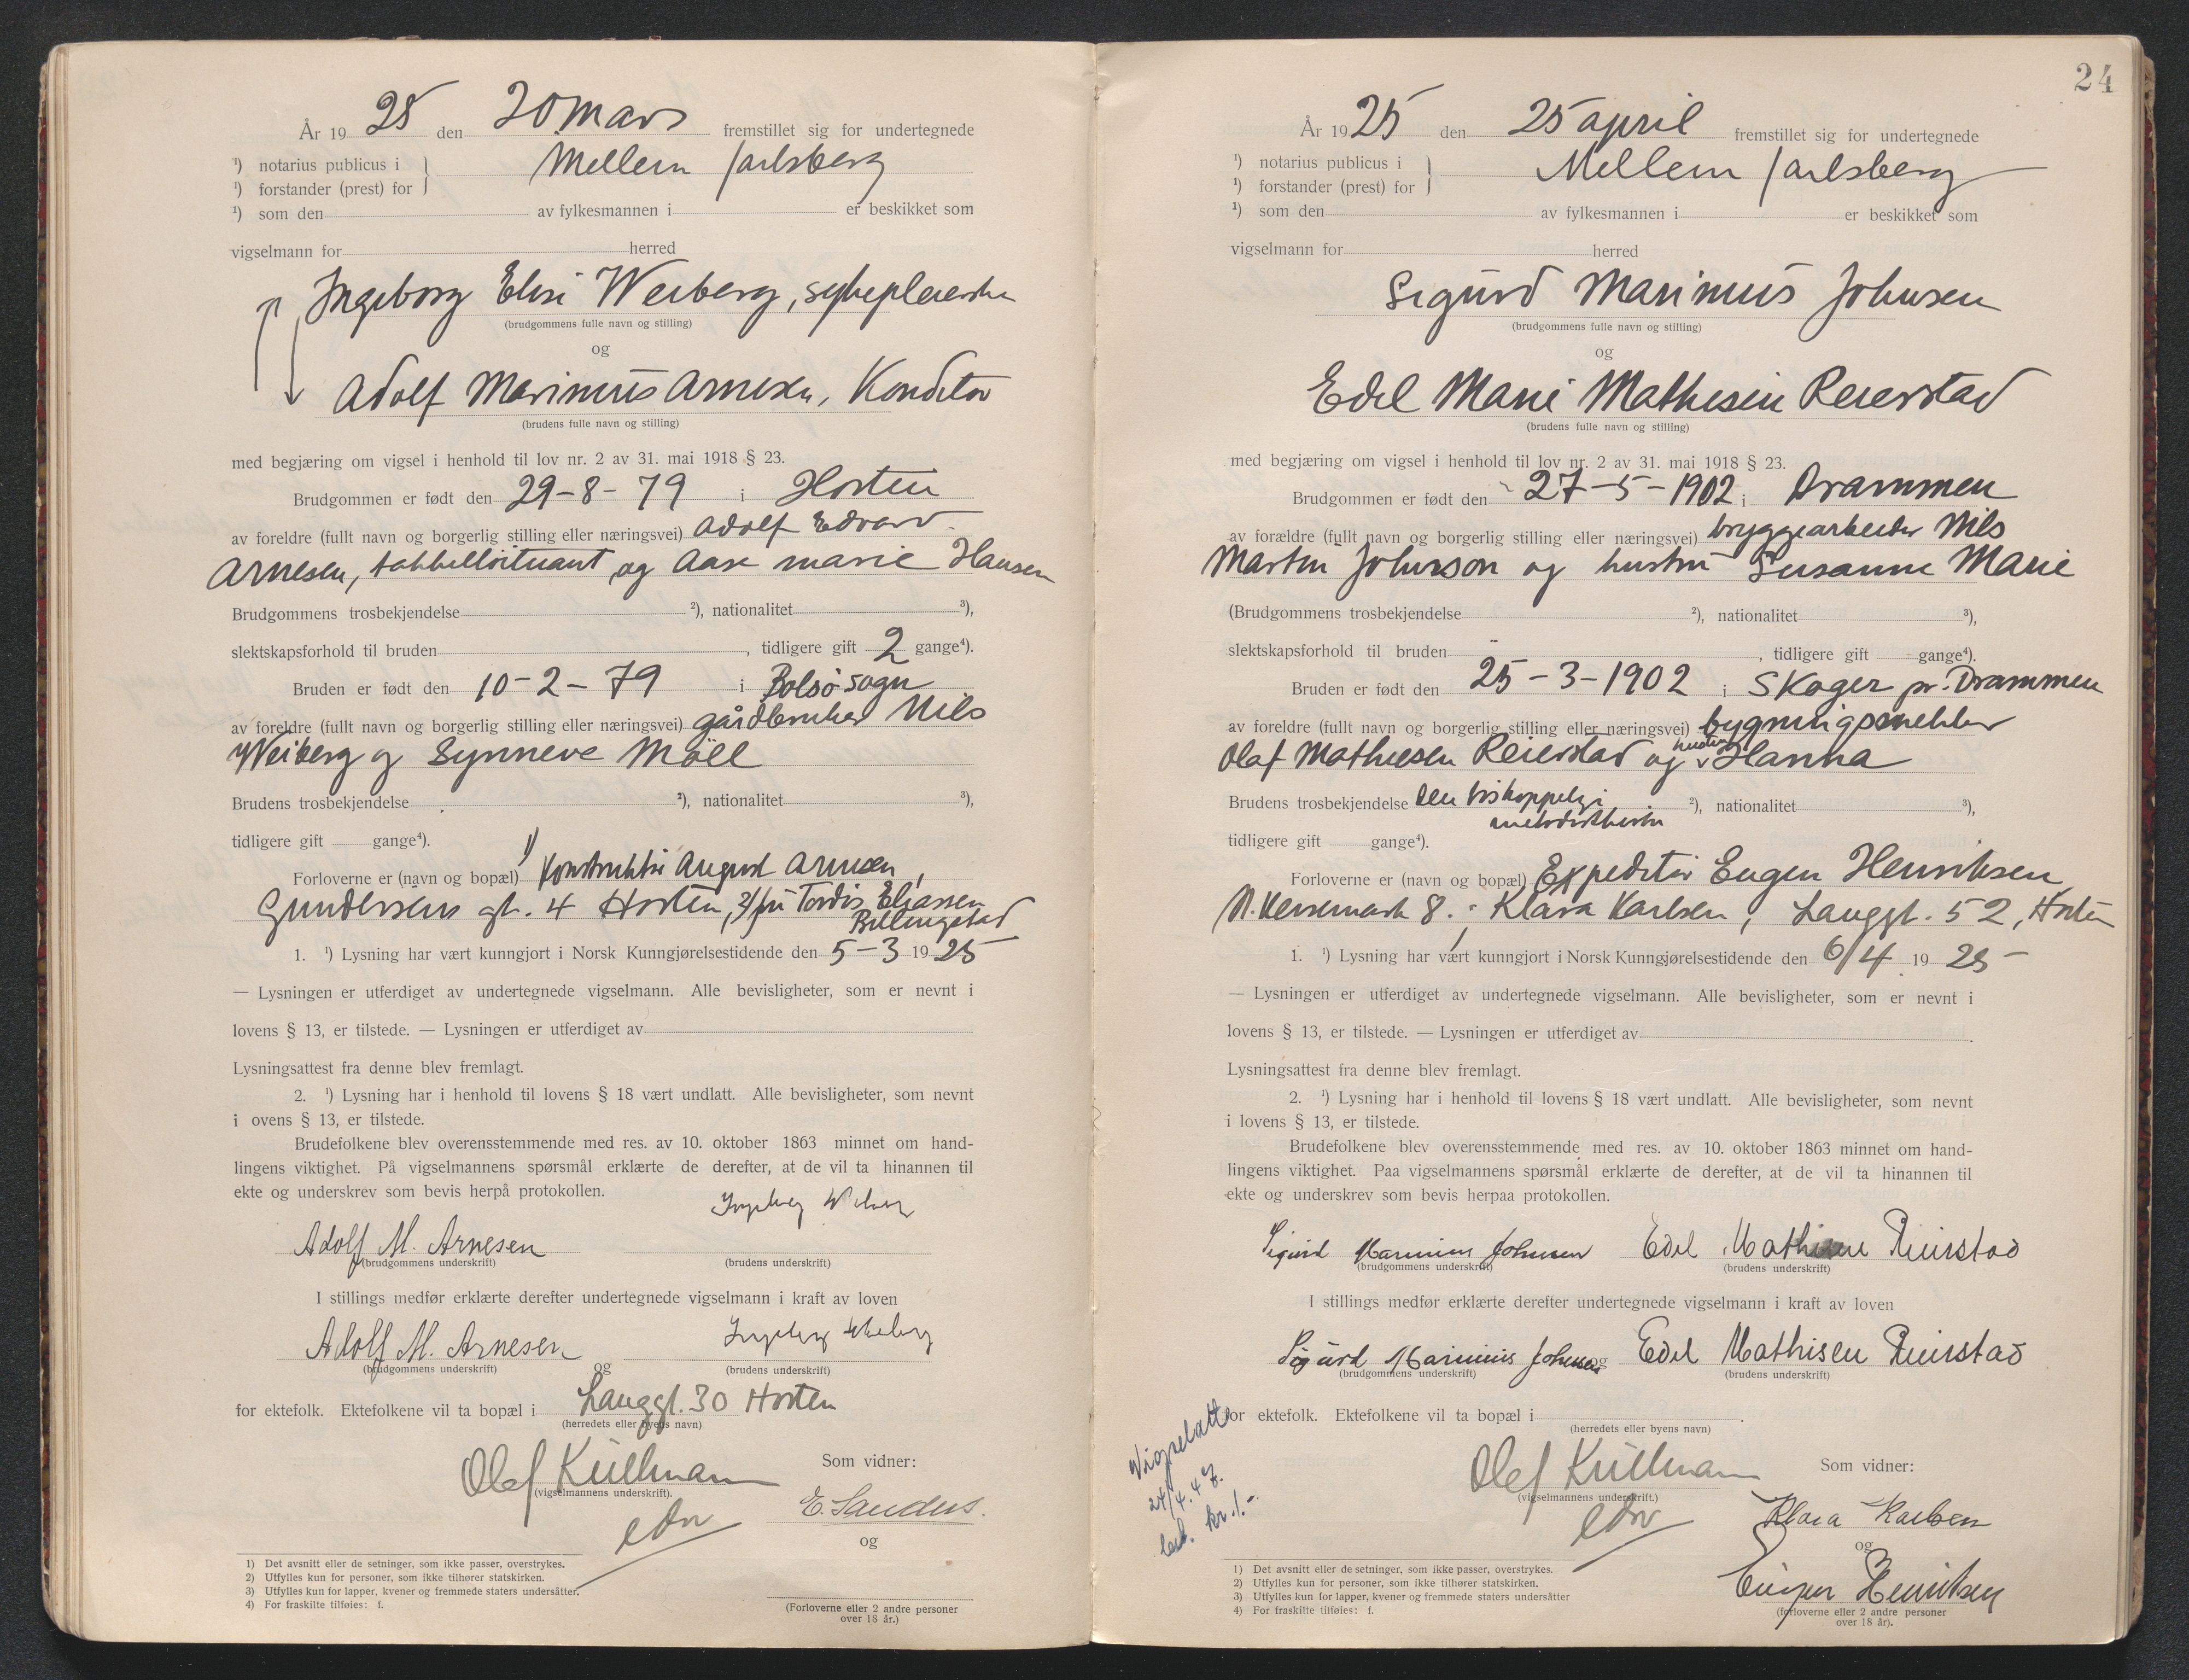 År 19 25 den 20 mars fremstillet sig for undertegnede
¹) notarius publicus i } Mellem Jarlsberg
¹) forstander (prest) for
¹) som den av fylkesmannen i er beskikket som
vigselmann for herred
Ingeborg Elisi Weiberg, sykepleierske
(brudgommens fulle navn og stilling)
og
Adolf Marinius Arnesen, Konditor
(brudens fulle navn og stilling)
med begjæring om vigsel i henhold til lov nr. 2 av 31. mai 1918 § 23.
Brudgommen er født den 29-8-79 i Horten
av foreldre (fullt navn og borgerlig stilling eller næringsvei) Adolf Edvard
Arnesen, og Aase Marie Hansen
Brudgommens trosbekjendelse ²), nationalitet ³),
slektskapsforhold til bruden , tidligere gift 2 gange⁴).
Bruden er født den 10-2-79 i Bolsø sogn
av foreldre (fullt navn og borgerlig stilling eller næringsvei) gårdbruker Nils
Weiberg og Synneve Moll
Brudens trosbekjendelse ²), nationalitet ³),
tidligere gift gange⁴).
Forloverne er (navn og bopæl) 1) Konstruktør August Arnesen,
Gundersens gt. 4 Horten, 2/ fru Tordis Eliassen
Billingstad
1. ¹) Lysning har vært kunngjort i Norsk Kunngjørelsestidende den 5-3 19 25
— Lysningen er utferdiget av undertegnede vigselmann. Alle bevisligheter, som er nevnt i
lovens § 13, er tilstede. — Lysningen er utferdiget av
Lysningsattest fra denne blev fremlagt.
2. ¹) Lysning har i henhold til lovens § 18 vært undlatt. Alle bevisligheter, som nevnt
i ovens § 13, er tilstede.
Brudefolkene blev overensstemmende med res. av 10. oktober 1863 minnet om hand-
lingens viktighet. På vigselmannens spørsmål erklærte de derefter, at de vil ta hinannen til
ekte og underskrev som bevis herpå protokollen.
Adolf M. Arnesen Ingeborg Weiberg
(brudgommens underskrift) (brudens underskrift)
I stillings medfør erklærte derefter undertegnede vigselmann i kraft av loven
Adolf M. Arnesen og Ingeborg Weiberg
(brudgommens underskrift) (brudens underskrift)
for ektefolk. Ektefolkene vil ta bopæl i Langgt. 30 Horten
(herredets eller byens navn)
Olef Küllmann Som vidner:
(vigselmannens underskrift).
edv E. Sanders.
og
1) Det avsnitt eller de setninger, som ikke passer, overstrykes.
2) Utfylles kun for personer, som ikke tilhører statskirken.
3) Utfylles kun for lapper, kvener og fremmede staters undersåtter.
4) For fraskilte tilføies: f.
(Forloverne eller 2 andre personer
over 18 år.)
24
År 19 25 den 25 april fremstillet sig for undertegnede
¹) notarius publicus i } Mellem Jarlsberg
¹) forstander (prest) for
¹) som den av fylkesmannen i er beskikket som
vigselmann for herred
Sigurd Marinius Johnsen
(brudgommens fulle navn og stilling)
og
Edel Marie Mathisen Reierstad
(brudens fulle navn og stilling)
med begjæring om vigsel i henhold til lov nr. 2 av 31. mai 1918 § 23.
Brudgommen er født den 27-5-1902 i Drammen
av forældre (fullt navn og borgerlig stilling eller næringsvei) bryggearbeider Nils
Martin Johnson og hustru Susanne Marie
(Brudgommens trosbekjendelse ²), nationalitet ³),
slektskapsforhold til bruden , tidligere gift gange⁴).
Bruden er født den 25-3-1902 i Skoger pr. Drammen
av foreldre (fullt navn og borgerlig stilling eller næringsvei) bygningssnekker
Olaf Mathiesen Reierstad og hustru Hanna
Brudens trosbekjendelse Den biskoppelige ²), nationalitet ³),
metodistkirke
tidligere gift gange⁴).
Forloverne er (navn og bopæl) Expeditør Eugen Henriksen
N. 8. ; Klara Karlsen, Langgt. 52, Horten
1. ¹) Lysning har vært kunngjort i Norsk Kunngjørelsestidende den 6/4 19 25
— Lysningen er utferdiget av undertegnede vigselmann. Alle bevisligheter, som er nevnt i
lovens § 13, er tilstede. — Lysningen er utferdiget av
Lysningsattest fra denne blev fremlagt.
2. ¹) Lysning har i henhold til lovens § 18 vært undlatt. Alle bevisligheter, som nevnt
i lovens § 13, er tilstede.
Brudefolkene blev overensstemmende med res. av 10. oktober 1863 minnet om hand-
lingens viktighet. Paa vigselmannens spørsmål erklærte de derefter, at de vil ta hinannen til
ekte og underskrev som bevis herpaa protokollen.
Sigurd Marinius Johnsen Edel Mathisen Reierstad
(brudgommens underskrift) (brudens underskrift)
I stillings medfør erklærte derefter undertegnede vigselmann i kraft av loven
Sigurd Marinius Johnsen og Edel Mathisen Reierstad
(brudgommens underskrift) (brudens underskrift)
for ektefolk. Ektefolkene vil ta bopæl i .
(herredets eller byens navn)
Vigselatt.
24/4.47.
bet. kr. 1.-
Olef Küllmann Som vidner:
(vigselmannens underskrift.)
edv Klara Karlsen
og
Eugen Henriksen
(forloverne eller 2 andre personer
over 18 år).
1) Det avsnitt eller de setninger, som ikke passer, overstrykes.
2) Utfylles kun for personer, som ikke tilhører statskirken.
3) Utfylles kun for lapper, kvener og fremmede staters undersåtter
4) For fraskilte tilføies: f.